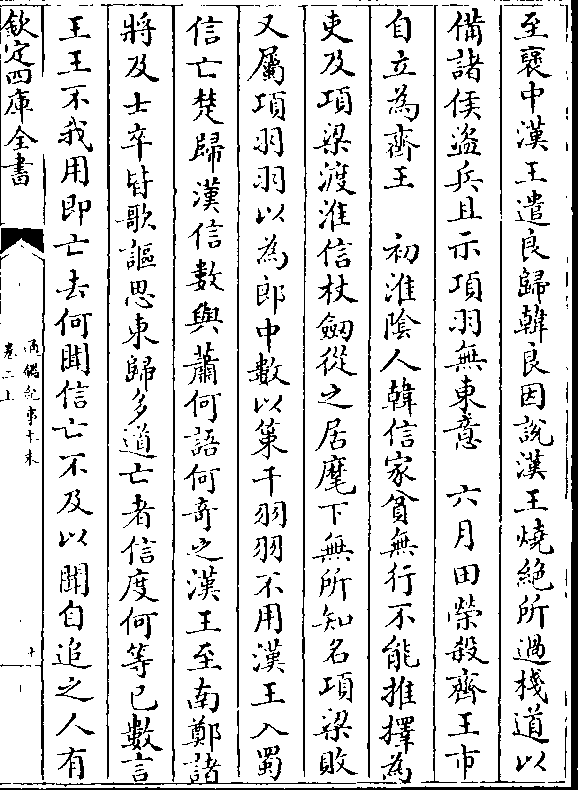 至襃中漢王遣良歸韓良因說漢王燒絶所過棧道以
備諸侯盜兵且示項羽無東意　六月田榮殺齊王市
自立為齊王　初淮隂人韓信家貧無行不能推擇為
吏及項梁渡淮信杖劒從之居麾下無所知名項梁敗
又屬項羽羽以為郎中數以策干羽羽不用漢王入蜀
信亡楚歸漢信數與蕭何語何奇之漢王至南鄭諸
將及士卒皆歌謳思東歸多道亡者信度何等已數言
王王不我用即亡去何聞信亡不及以聞自追之人有
欽定四庫全書
通鑑紀事本末
卷二上
十